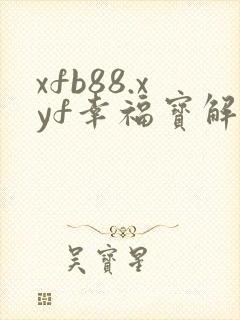 xfb88.x
yf幸福寶解
吴寶星